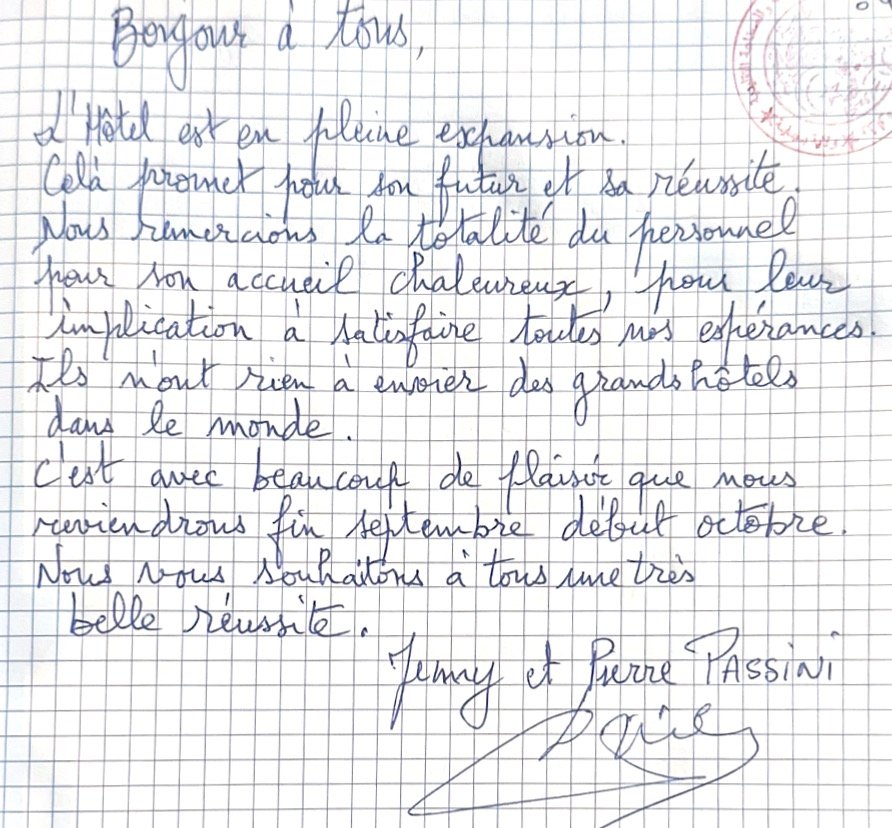 Bonjour à tous,
L'Hôtel est en pleine expansion.
Celà promet pour son futur et sa réussite.
Nous remercions la totalité du personnel
pour son accueil chaleureux, pour leur
implication à satisfaire toutes nos espérances.
Ils n'ont rien à envier des grands hôtels
dans le monde.
C'est avec beaucoup de plaisir que nous
reviendrons fin septembre début octobre.
Nous vous souhaitons à tous une très
belle réussite.
Jenny et Pierre PASSINI